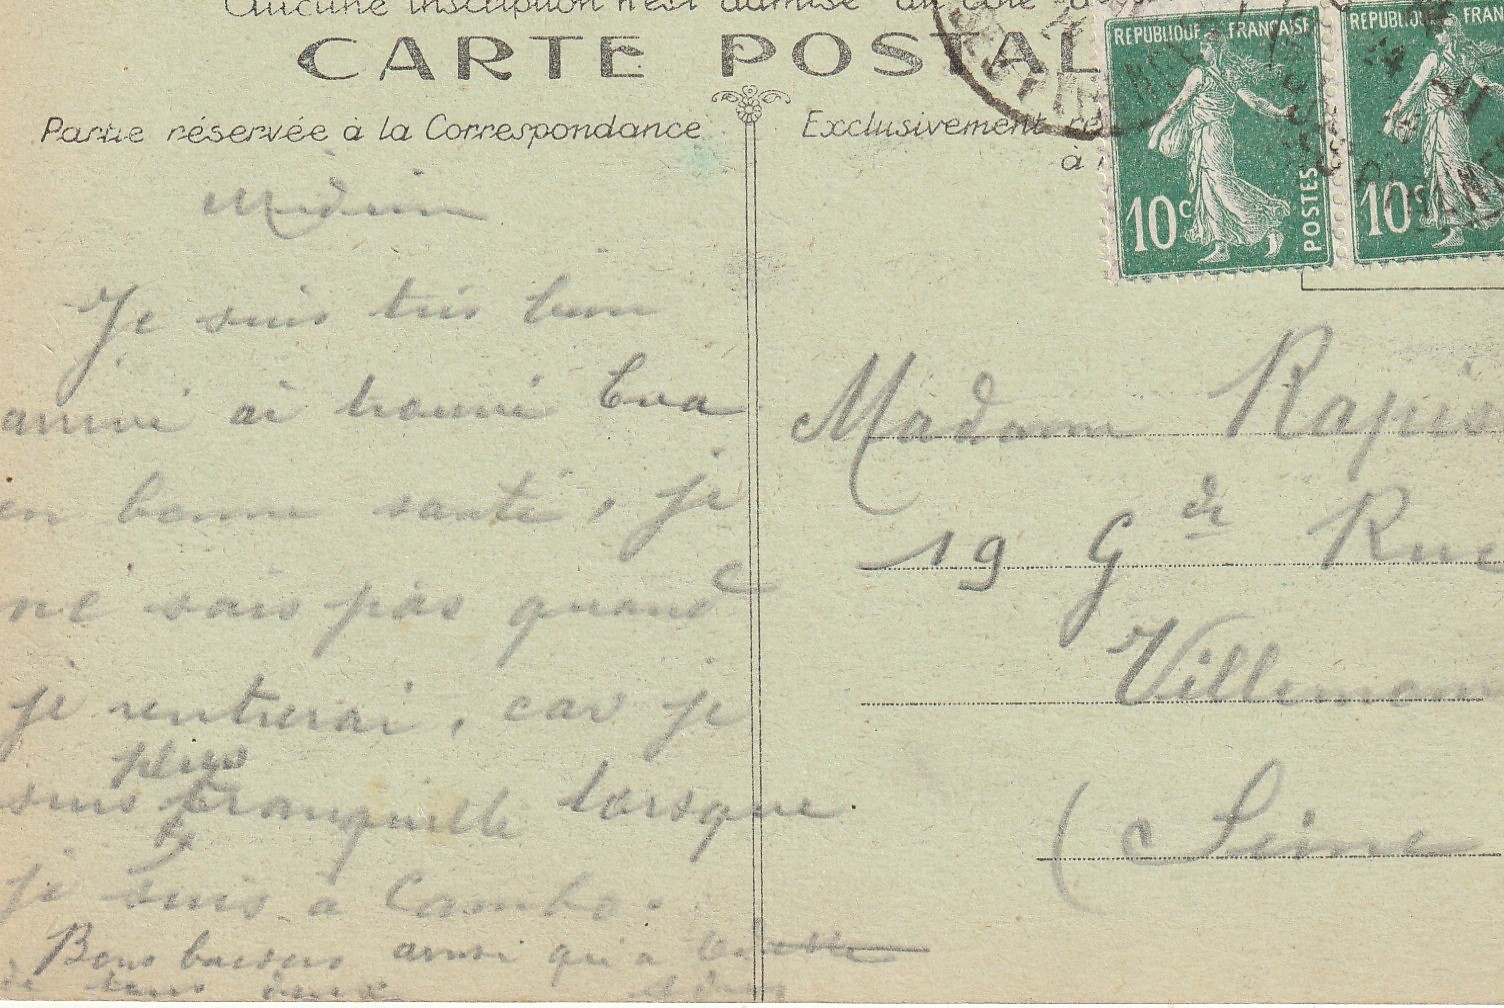 Aucune inscription n'est admise du côté
CARTE POSTAL
Partie réservée à la Correspondance
Exclusivement ré
à
REPUBLIQUE FRANÇAISE
10c
POSTES
REPUBLIQUE FRAN
10c
Je suis très bien
arrivé ai trouvé Eva
en bonne santé, je
ne sais pas quand
je rentrerai, car je
plus
suis tranquille lorsque
je suis à Cambo.
Bons baisers ainsi qu'a
de tous deux
Madame Rapis
19 Gde Rue
Villemom
(Seine